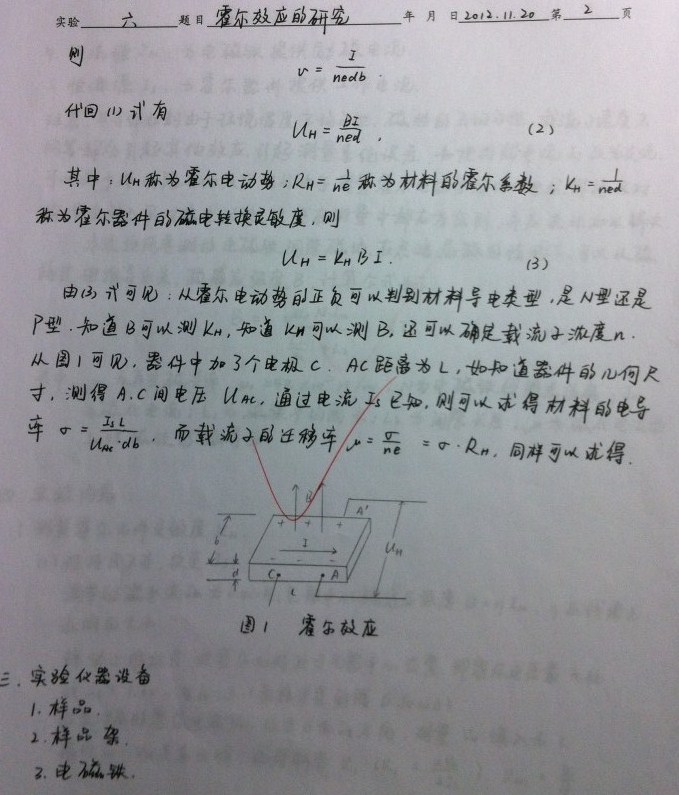 实验 六 题目 霍尔效应的研究 年 月 日 2012.11.20 第 2 页
则
v = I/nedb .
代回(1)式有
U_H = BI/ned , (2)
其中：U_H 称为霍尔电动势；R_H = 1/ne 称为材料的霍尔系数；K_H = 1/ned
称为霍尔器件的磁电转换灵敏度，则
U_H = K_H B I. (3)
由(3)式可见：从霍尔电动势的正负可以判别材料导电类型，是N型还是
P型．知道B可以测K_H，知道K_H可以测B，还可以确定载流子浓度n．
从图1可见，器件中加了个电极C．AC距离为L，如知道器件的几何尺
寸，测得A.C间电压 U_AC，通过电流 I_S 已知，则可以求得材料的电导
率 σ = I_S L/U_AC·db ．而载流子的迁移率 μ = σ/ne = σ·R_H，同样可以求得．
B
+ + + A'
b I U_H
- - -
d C A
L
图1 霍尔效应
三．实验仪器设备
1．样品．
2．样品架．
3．电磁铁．